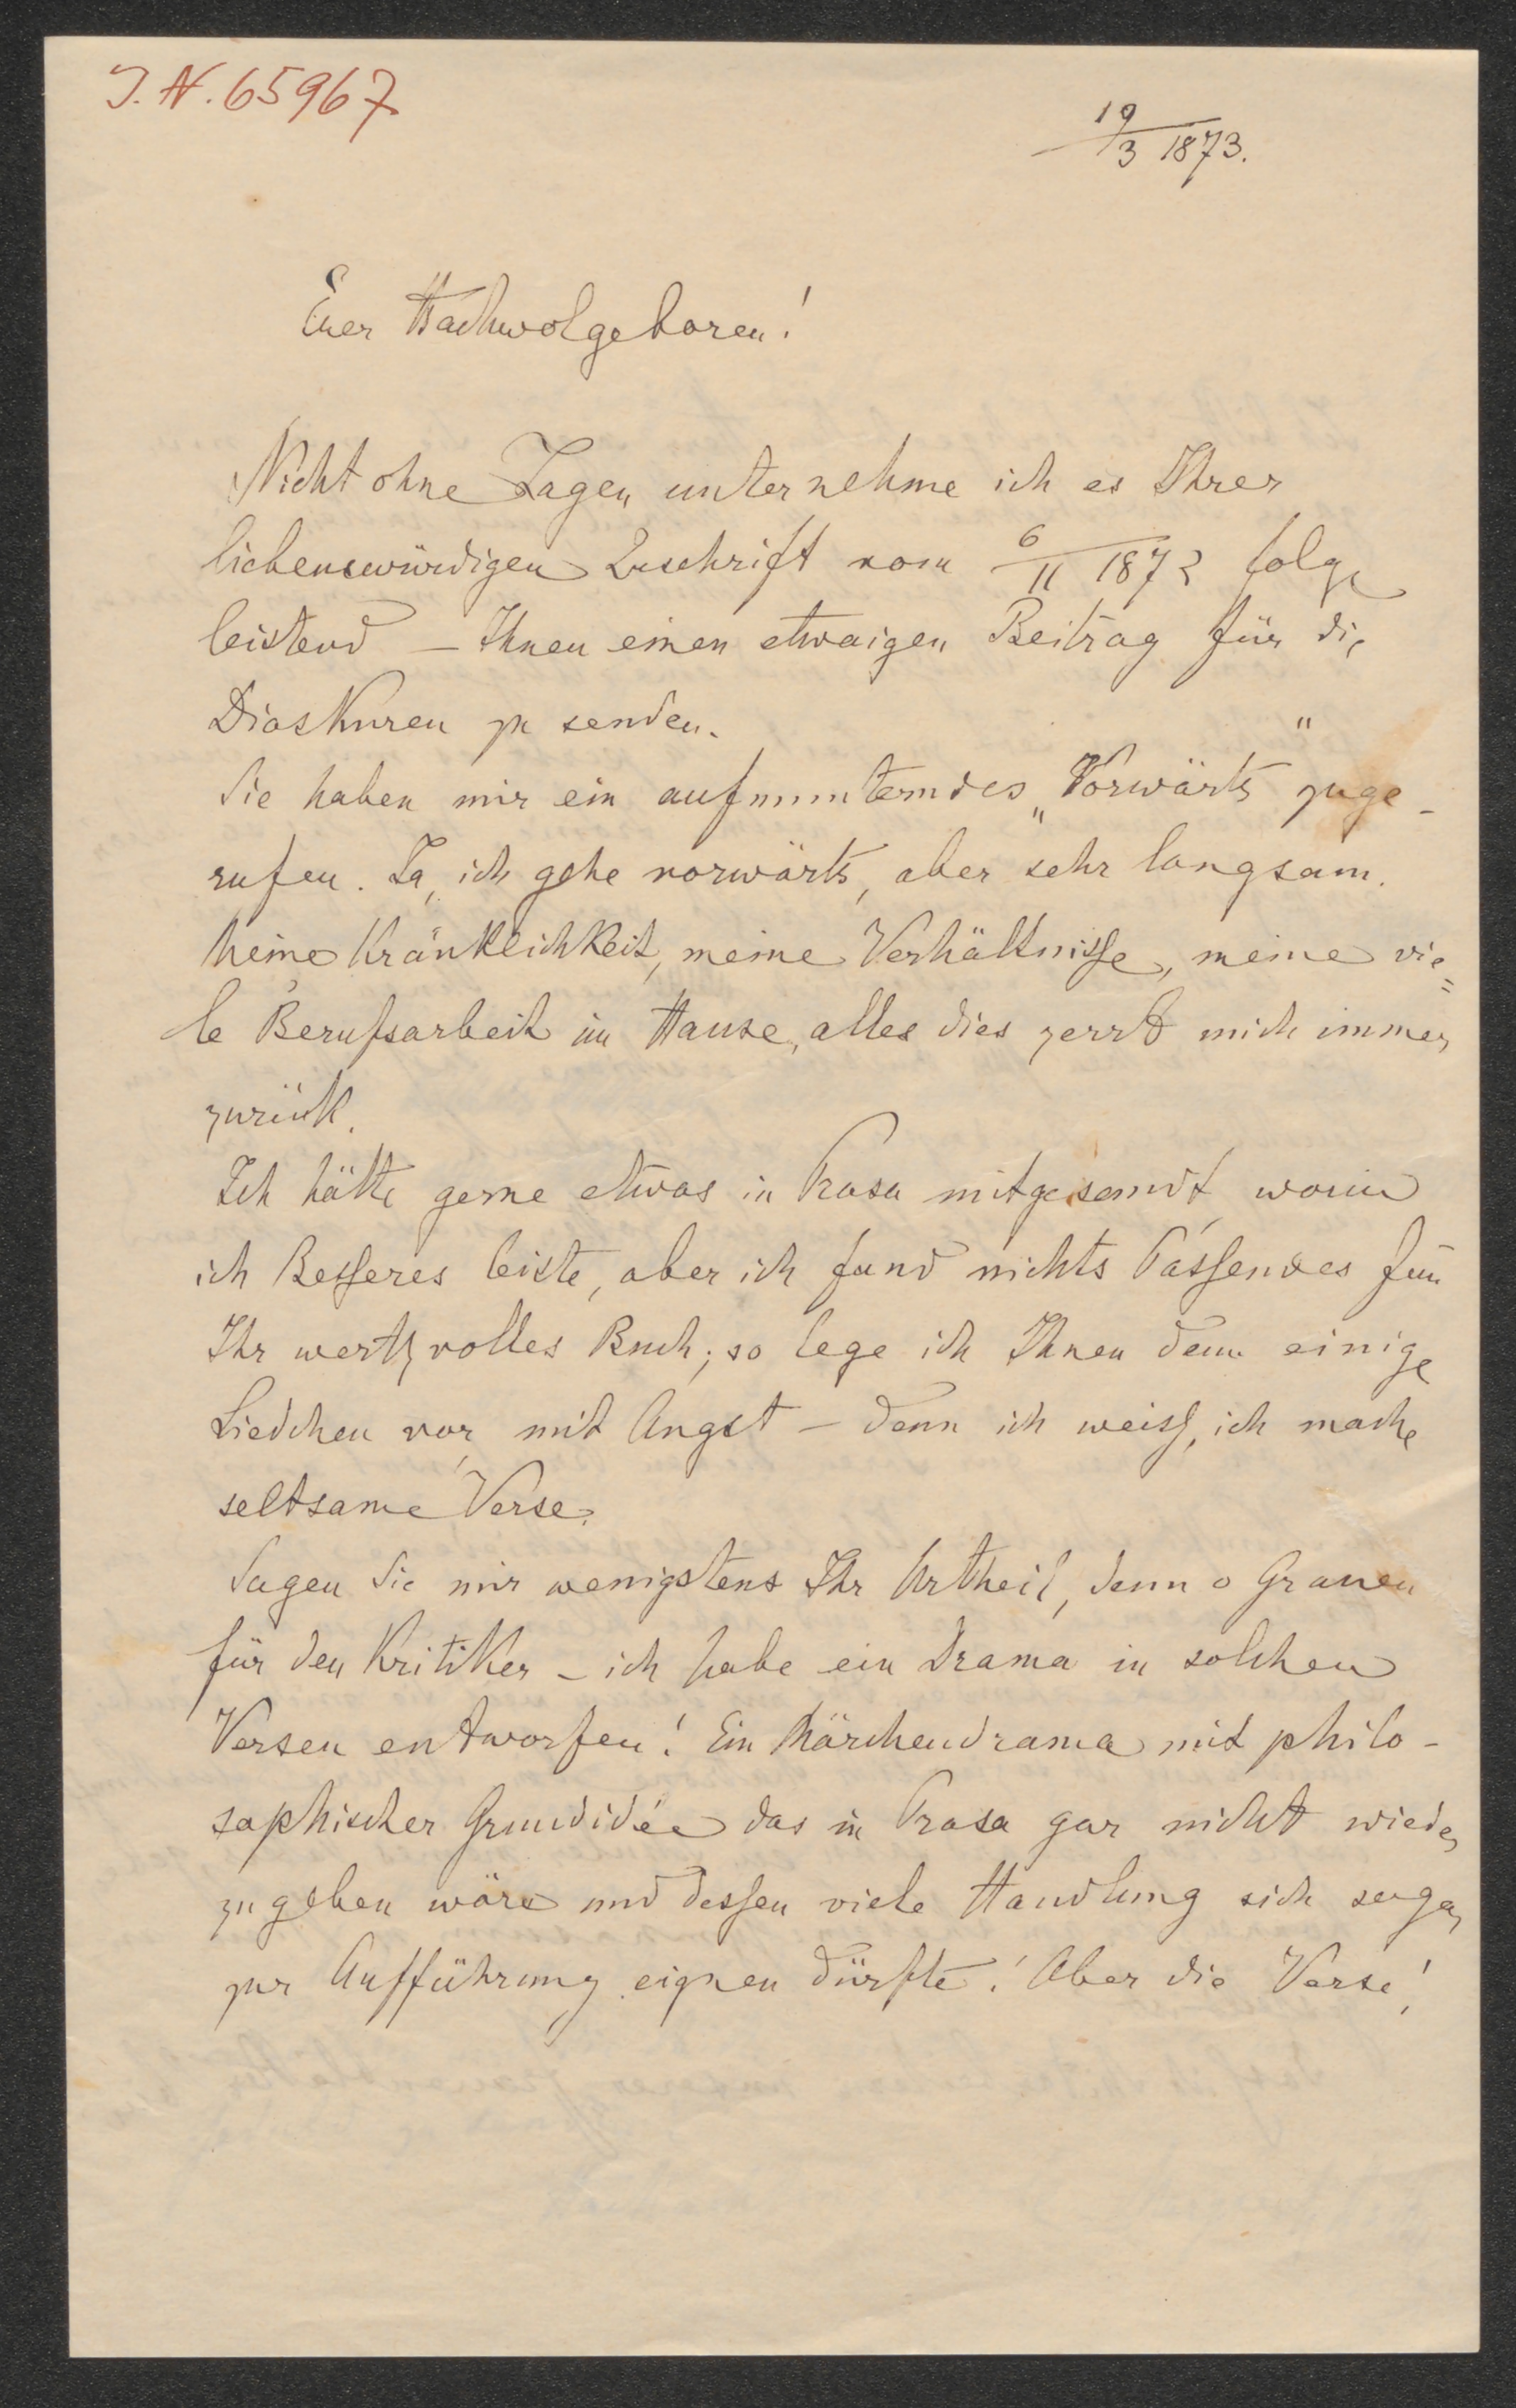 J. N. 65967
19/3 1873.
Euer Hochwolgeboren!
Nicht ohne Zagen unternehme ich es Ihrer
liebenswürdigen Zuschrift vom 6/11 1872 folge
leistend – Ihnen einen etwaigen Beitrag für die
Dioskuren zu senden.
Sie haben mir ein aufmunterndes „Vorwärts" zuge-
rufen. Ja, ich gehe vorwärts, aber sehr langsam.
Meine Kränklichkeit, meine Verhältnisse, meine vie=
le Berufsarbeit im Hause, alles dies zerrt mich immer
zurück.
Ich hätte gerne etwas in Prosa mitgesandt, worin
ich Besseres leiste, aber ich fand nichts Passendes für
Ihr werthvolles Buch; so lege ich Ihnen denn einige
Liedchen vor, mit Angst – denn ich weiss, ich mache
seltsame Verse.
Sagen Sie mir wenigstens Ihr Urtheil, denn o Grauen
für den Kritiker – ich habe ein Drama in solchen
Versen entworfen! Ein Märchendrama mit philo-
sophischer Grundidée das in Prosa gar nicht wieder
zu geben wäre und dessen viele Handlung sich sogar
zur Aufführung eignen dürfte! Aber die Verse!